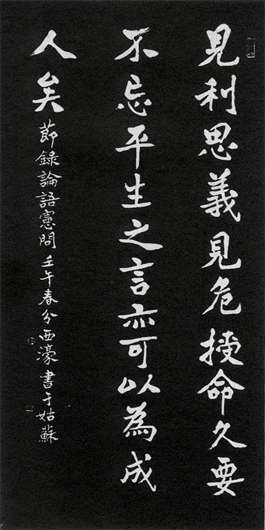 見利思義見危授命久要
不忘平生之言亦可以為成
人矣
節錄論語憲問 壬午春分西濠書于姑蘇